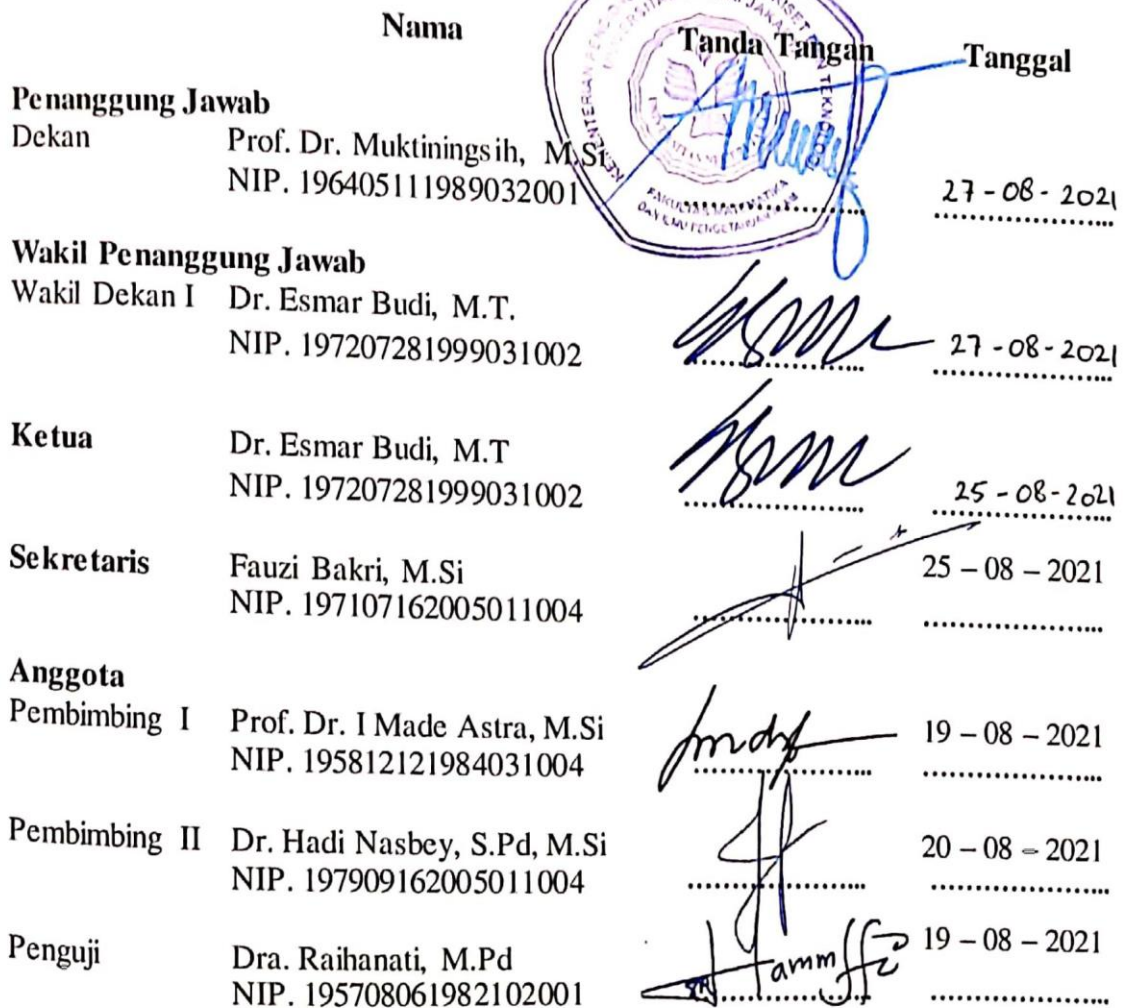 Nama Tanda Tangan Tanggal
Penanggung Jawab
Dekan Prof. Dr. Muktiningsih, M.Si
NIP. 196405111989032001 27-08-2021
Wakil Penanggung Jawab
Wakil Dekan I Dr. Esmar Budi, M.T.
NIP. 197207281999031002 27-08-2021
Ketua Dr. Esmar Budi, M.T
NIP. 197207281999031002 25-08-2021
Sekretaris Fauzi Bakri, M.Si 25 – 08 – 2021
NIP. 197107162005011004
Anggota
Pembimbing I Prof. Dr. I Made Astra, M.Si 19 – 08 – 2021
NIP. 195812121984031004
Pembimbing II Dr. Hadi Nasbey, S.Pd, M.Si 20 – 08 – 2021
NIP. 197909162005011004
Penguji Dra. Raihanati, M.Pd 19 – 08 – 2021
NIP. 195708061982102001